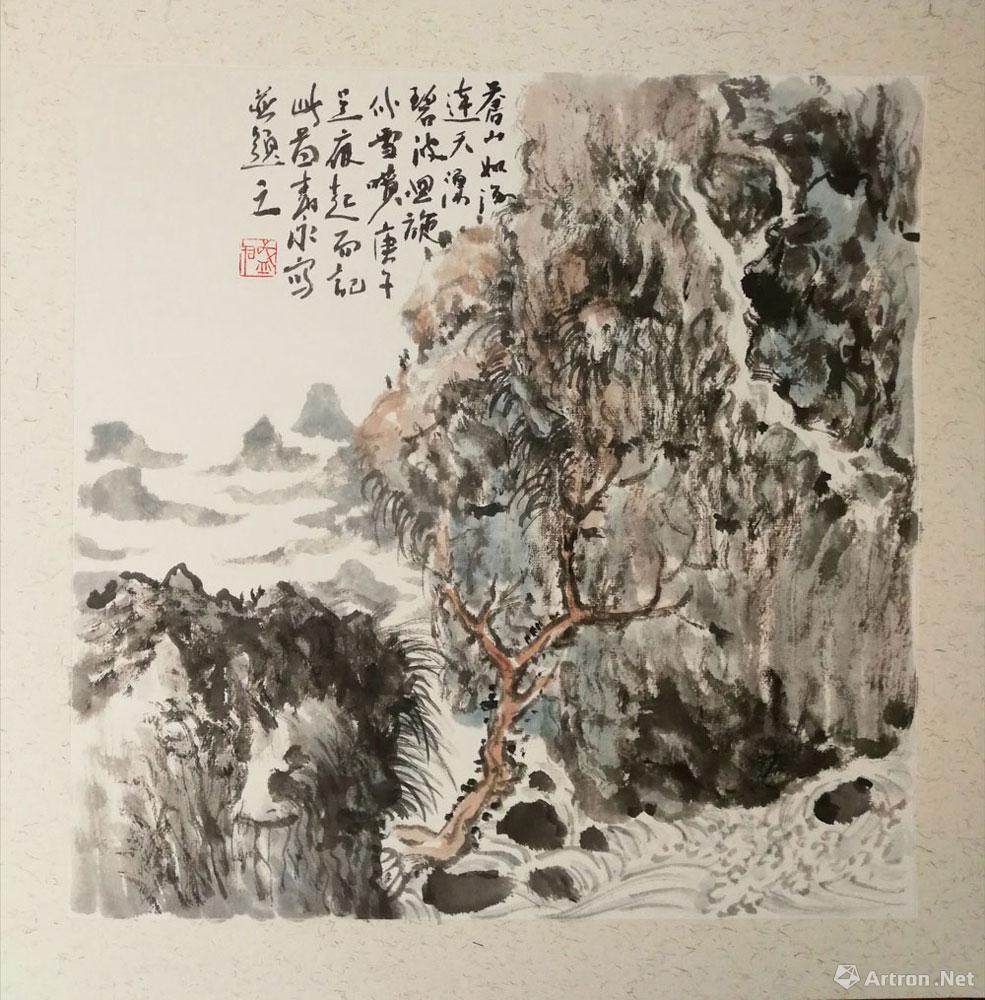 蒼山如涿
連天湧
碧波迴旋
似雪噴庚午
是夜起而記
此焉寿永寫
並題之
Artron.Net